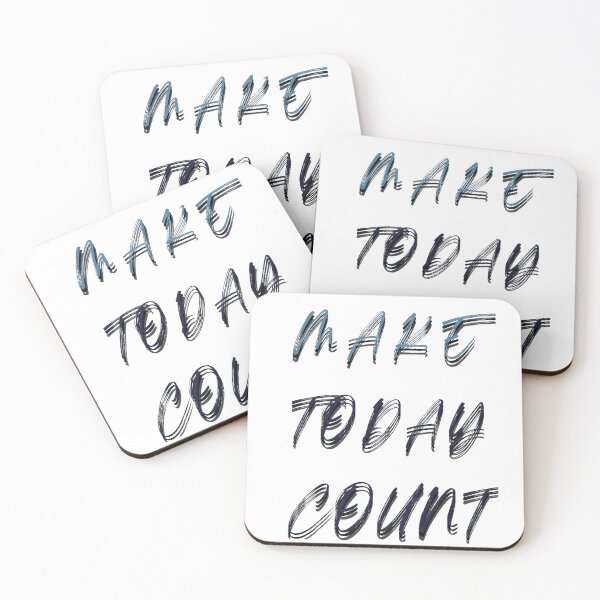 MAKE
TODAY
MAKE
TODAY
T
MAKE
TODAY
COU
MAKE
TODAY
COUNT